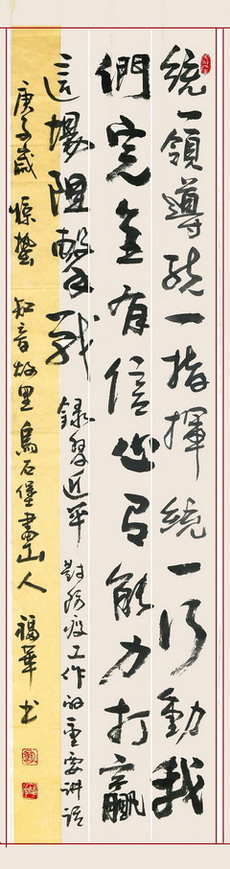 統一領導統一指揮統一行動我
們完全有信心有能力打贏
這場阻擊戰 錄習近平對防疫工作的重要講話
庚子歲惊蟄 知音故里烏石堡書山人 福華书